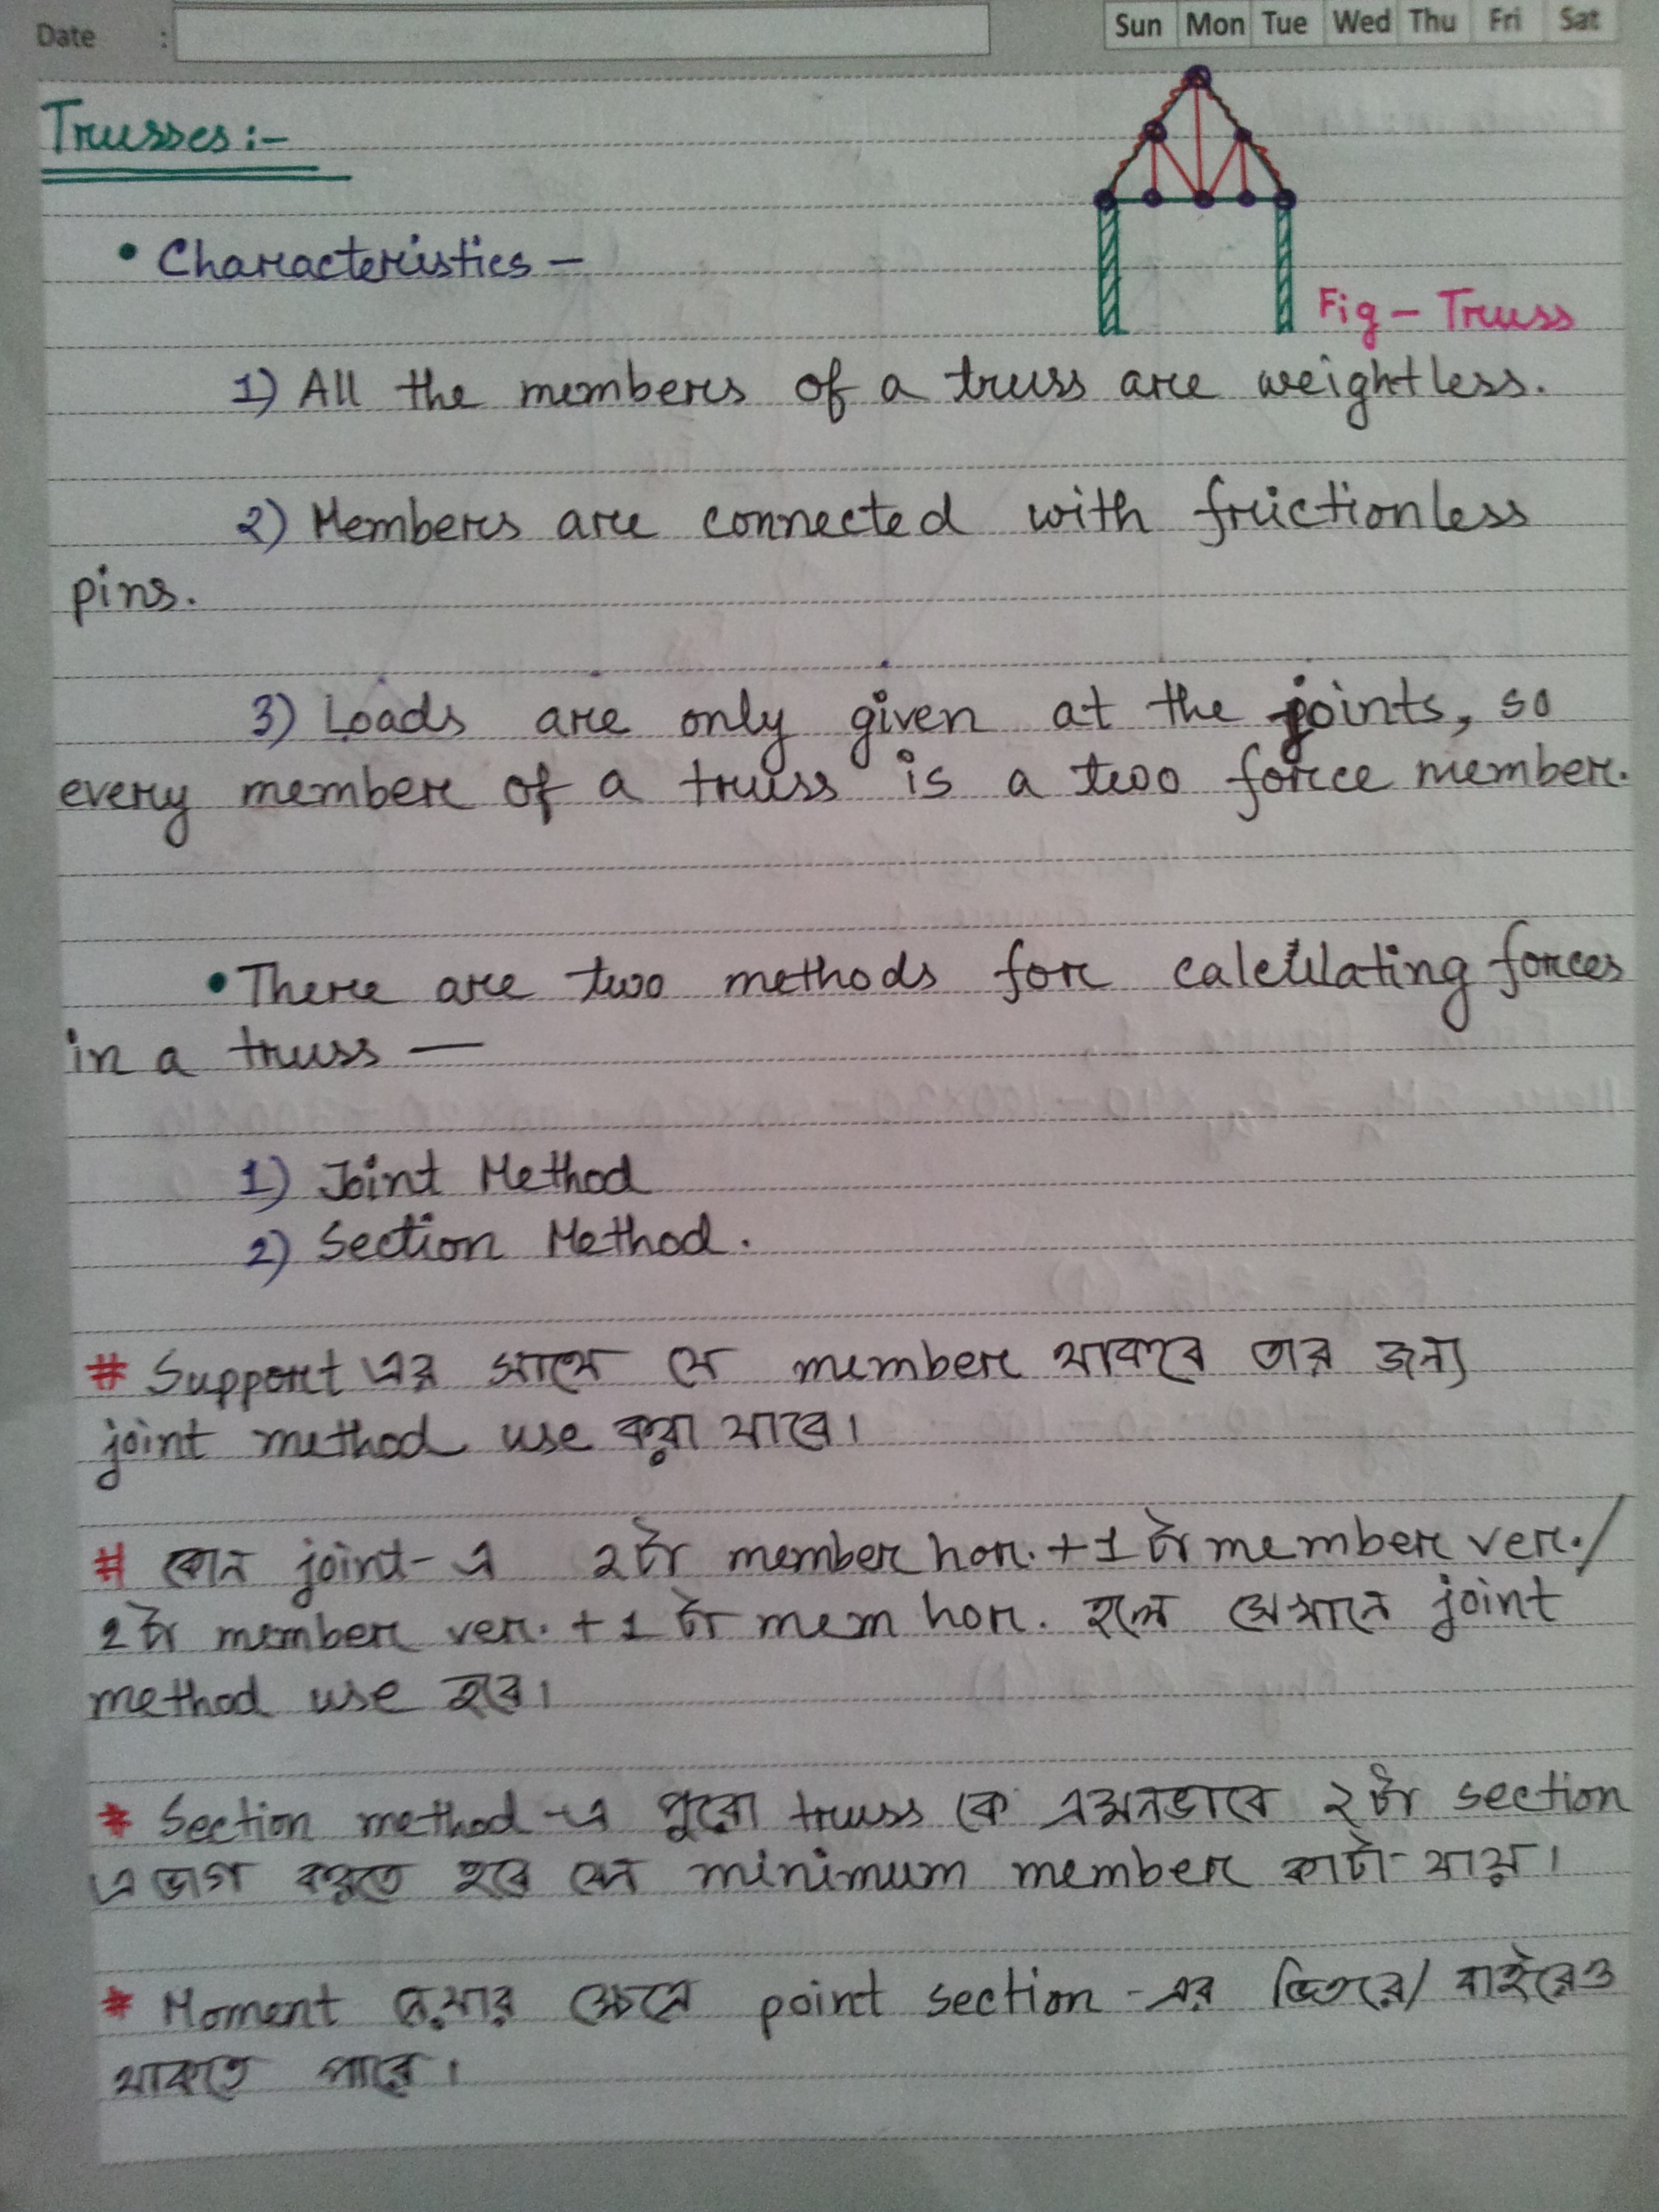 Date :
Sun Mon Tue Wed Thu Fri Sat
Trusses:-
• Characteristics —
Fig - Truss
1) All the members of a truss are weightless.
2) Members are connected with frictionless
pins.
3) Loads are only given at the joints, so
every member of a truss is a two force member.
• There are two methods for calculating forces
in a truss —
1) Joint Method
2) Section Method.
# Support এর সাথে যে member থাকবে তার জন্য
joint method use করা যাবে।
# কোন joint-এ ২টা member hor. + 1 টা member ver./
2 টা member ver. + 1 টা mem hor. হলে সেখানে joint
method use হবে।
* Section method-এ পুরো truss কে এমনভাবে ২টা section
এ ভাগ করতে হবে যেন minimum member কাটা যায়।
* Moment নেয়ার ক্ষেত্রে point section-এর ভিতরে/ বাইরেও
থাকতে পারে।